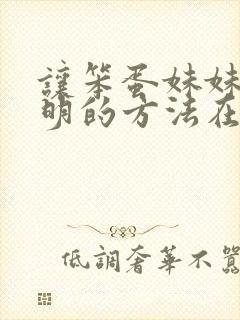 讓笨蛋妹妹
明的方法在
低調奢華不囂